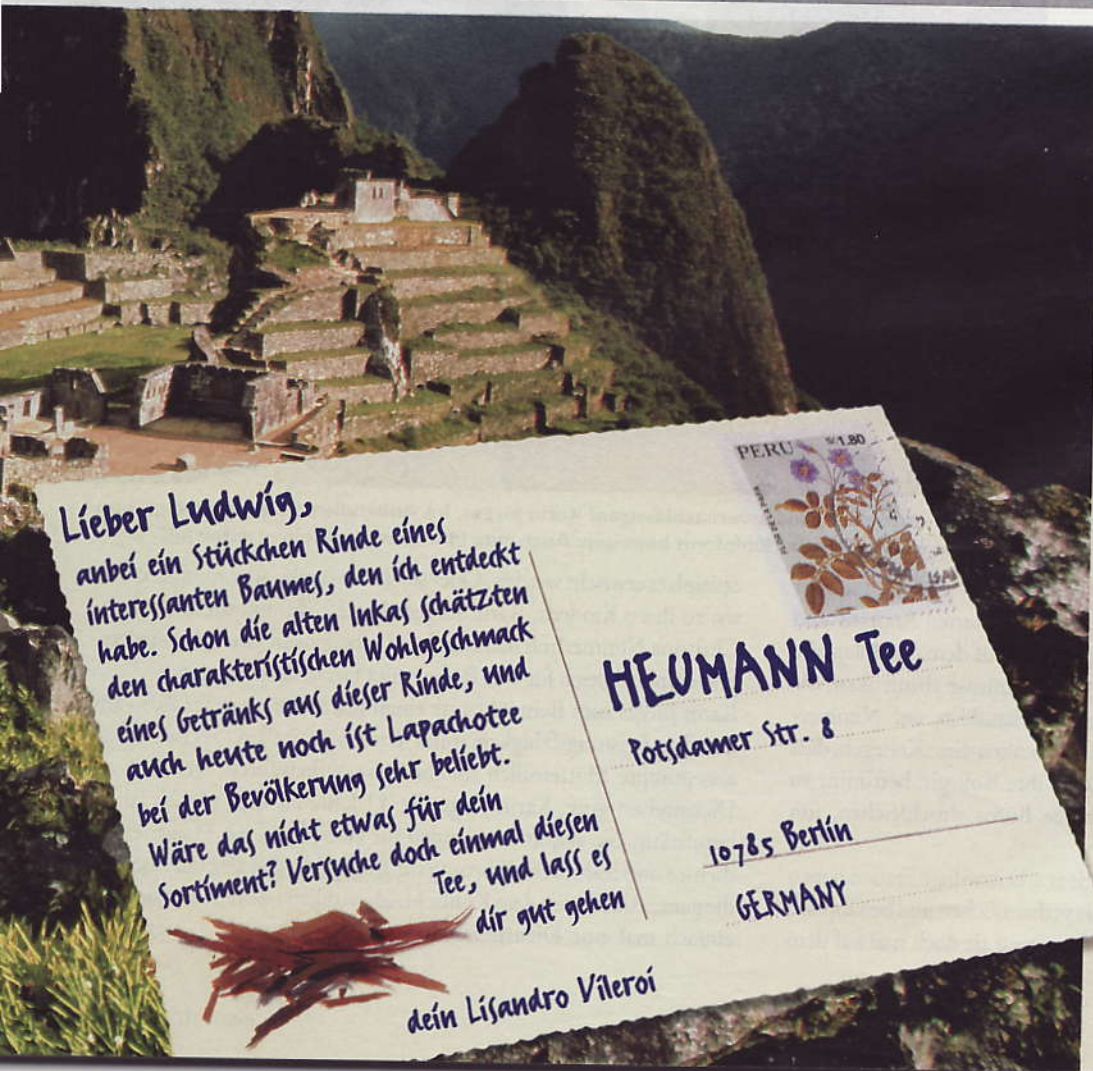 Lieber Ludwig,
anbei ein Stückchen Rinde eines
interessanten Baumes, den ich entdeckt
habe. Schon die alten Inkas schätzten
den charakteristischen Wohlgeschmack
eines Getränks aus dieser Rinde, und
auch heute noch ist Lapachotee
bei der Bevölkerung sehr beliebt.
Wäre das nicht etwas für dein
Sortiment? Versuche doch einmal diesen
Tee, und lass es
dir gut gehen
dein Lisandro Vileroi
PERU S/.1.80
HEUMANN Tee
Potsdamer Str. 8
10785 Berlin
GERMANY